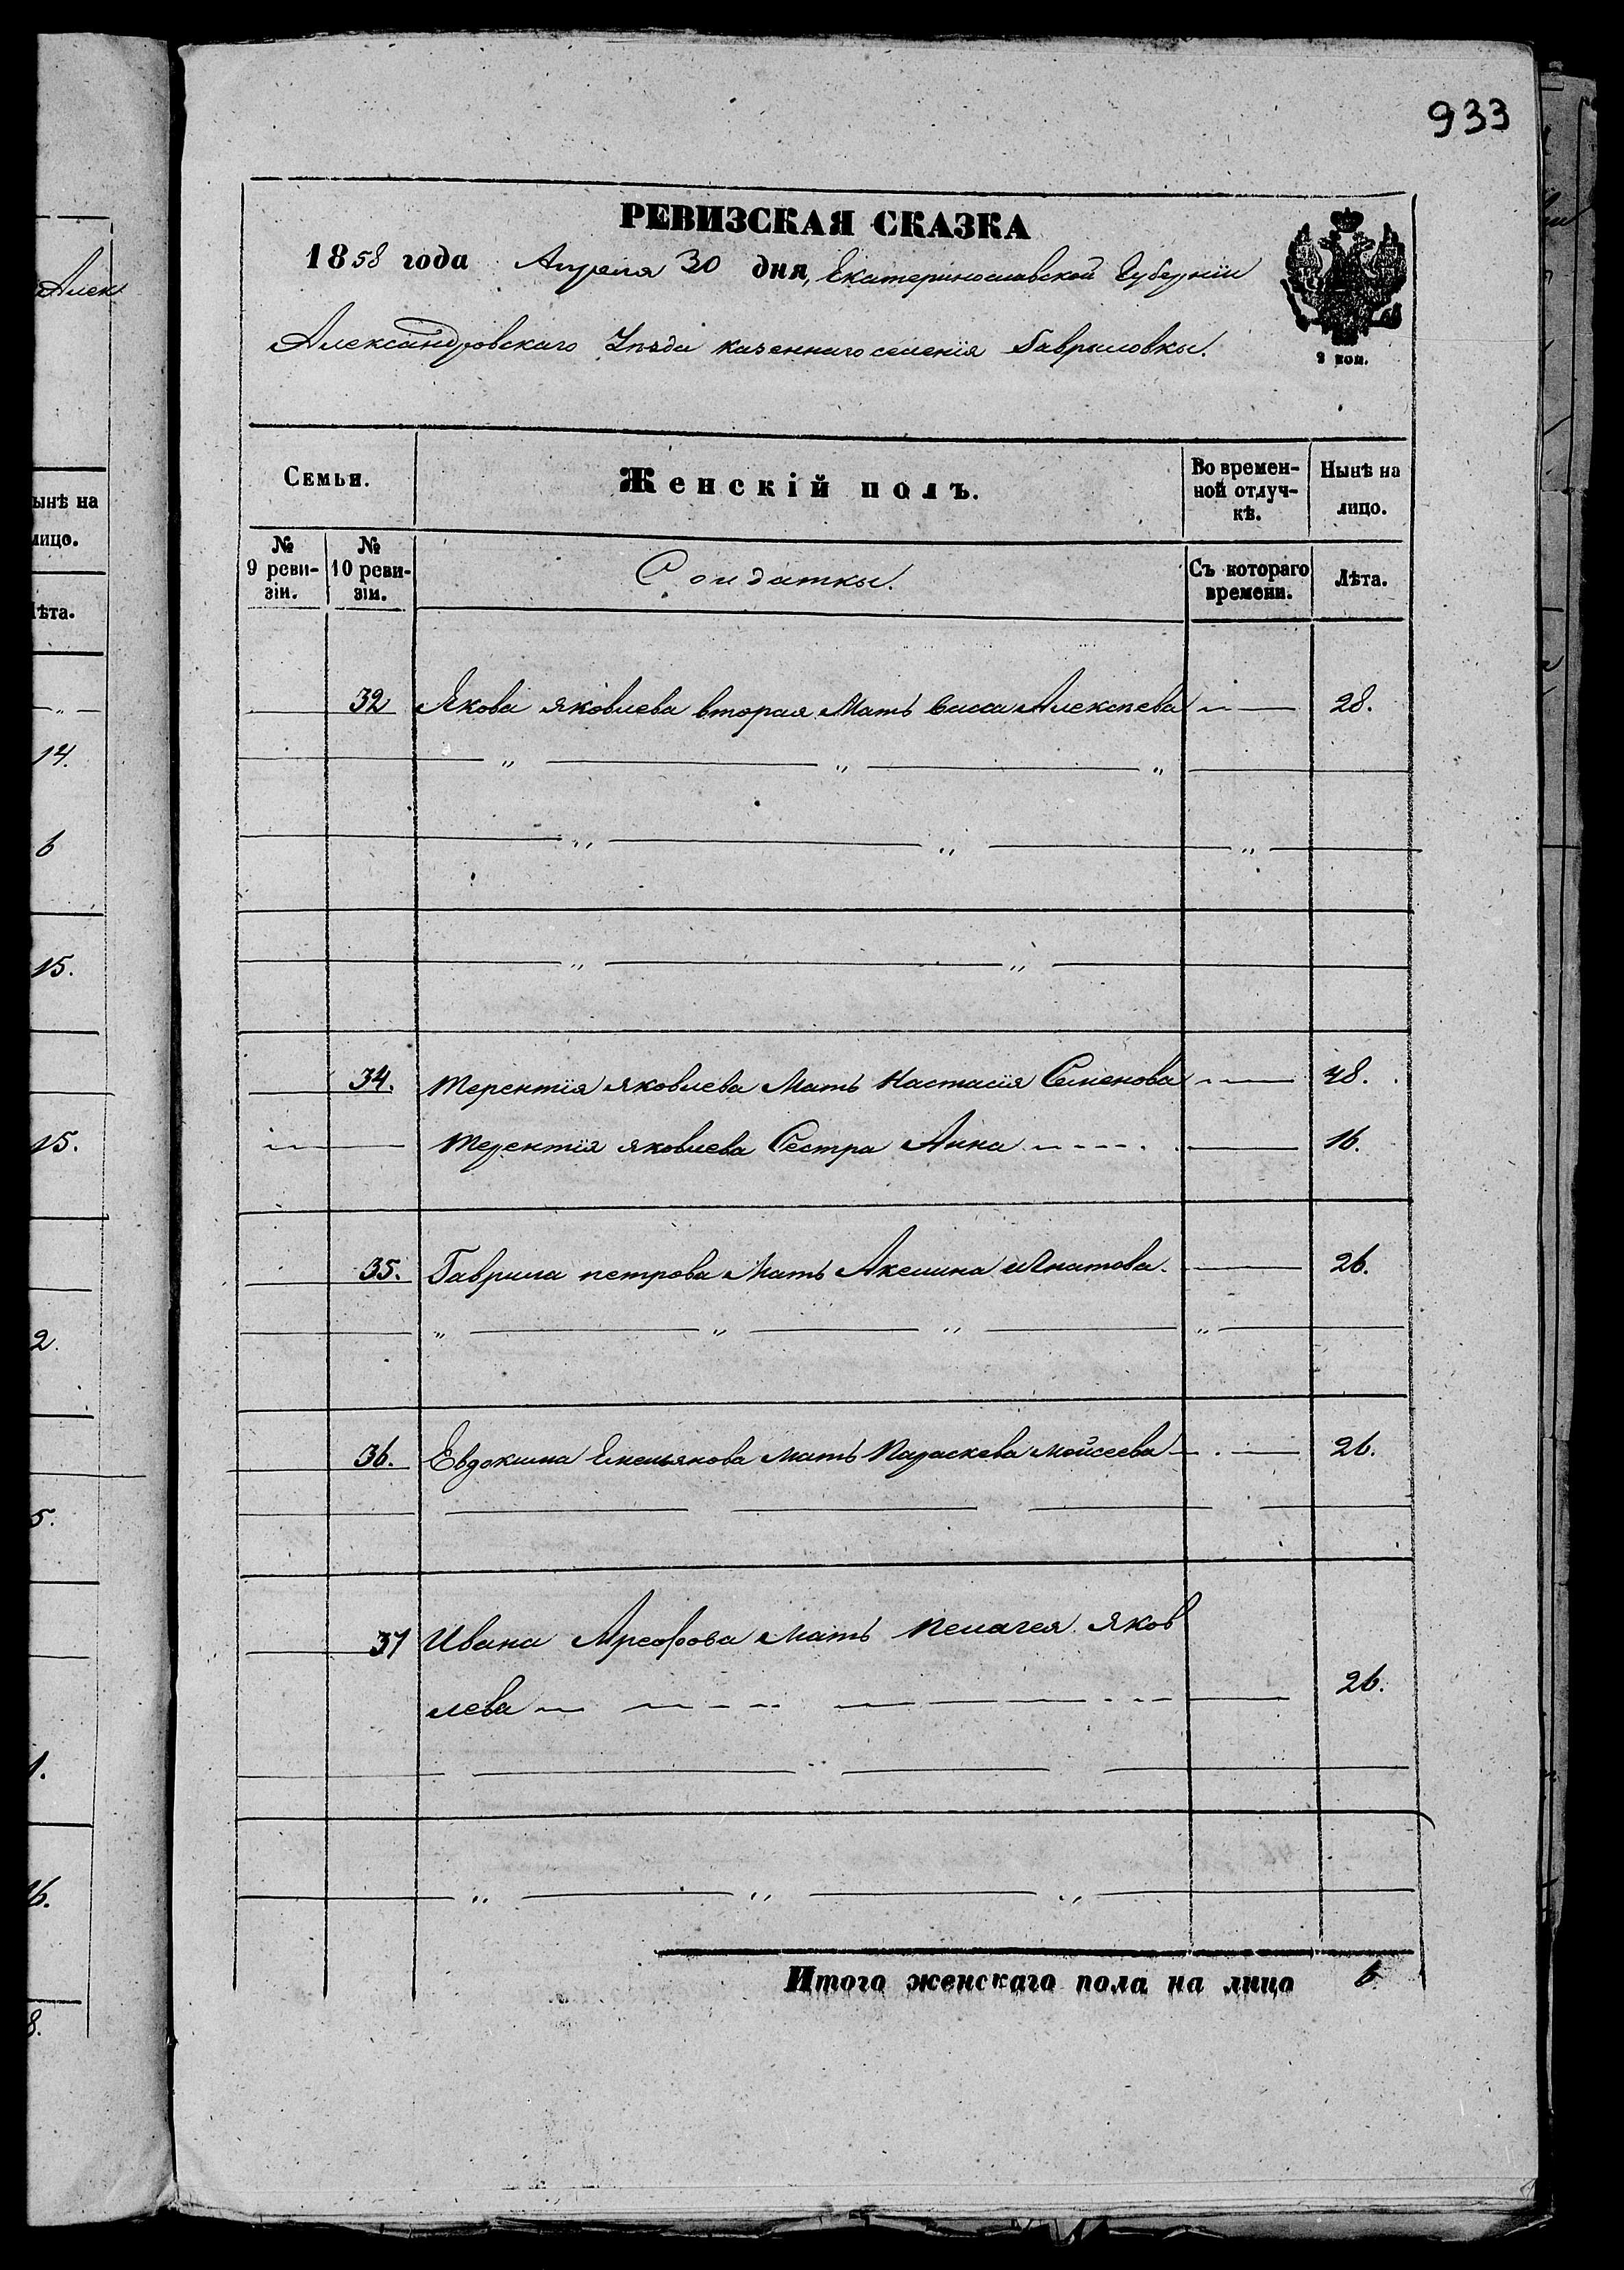 933
РЕВИЗСКАЯ СКАЗКА
1858 года Апреля 30 дня, Екатеринославской Губерніи
Александровскаго Уѣзда казеннаго селенія Гаврыловкы.
2 коп.
Семьи. Женскій полъ. Во времен- Нынѣ на
ной отлуч- лицо.
кѣ.
№ № Солдаткы. Съ котораго Лѣта.
9 реви- 10 реви- времени.
зіи. зіи.
32 Якова яковлева вторая Мать Васса Алексѣева 28.
34. Терентія яковлева Мать Настасія Семенова 48.
Терентія яковлева Сестра Анна 16.
35. Гаврила петрова Мать Акелина Игнатова. 26.
36. Евдокима Емельянова мать Параскева мойсеева 26.
37 Ивана Арефова мать пелагея яков
лева 26.
Итого женскаго пола на лицо 6
Алек
ынѣ на
лицо.
Лѣта.
14.
6
15.
15.
2.
5.
1.
16.
8.